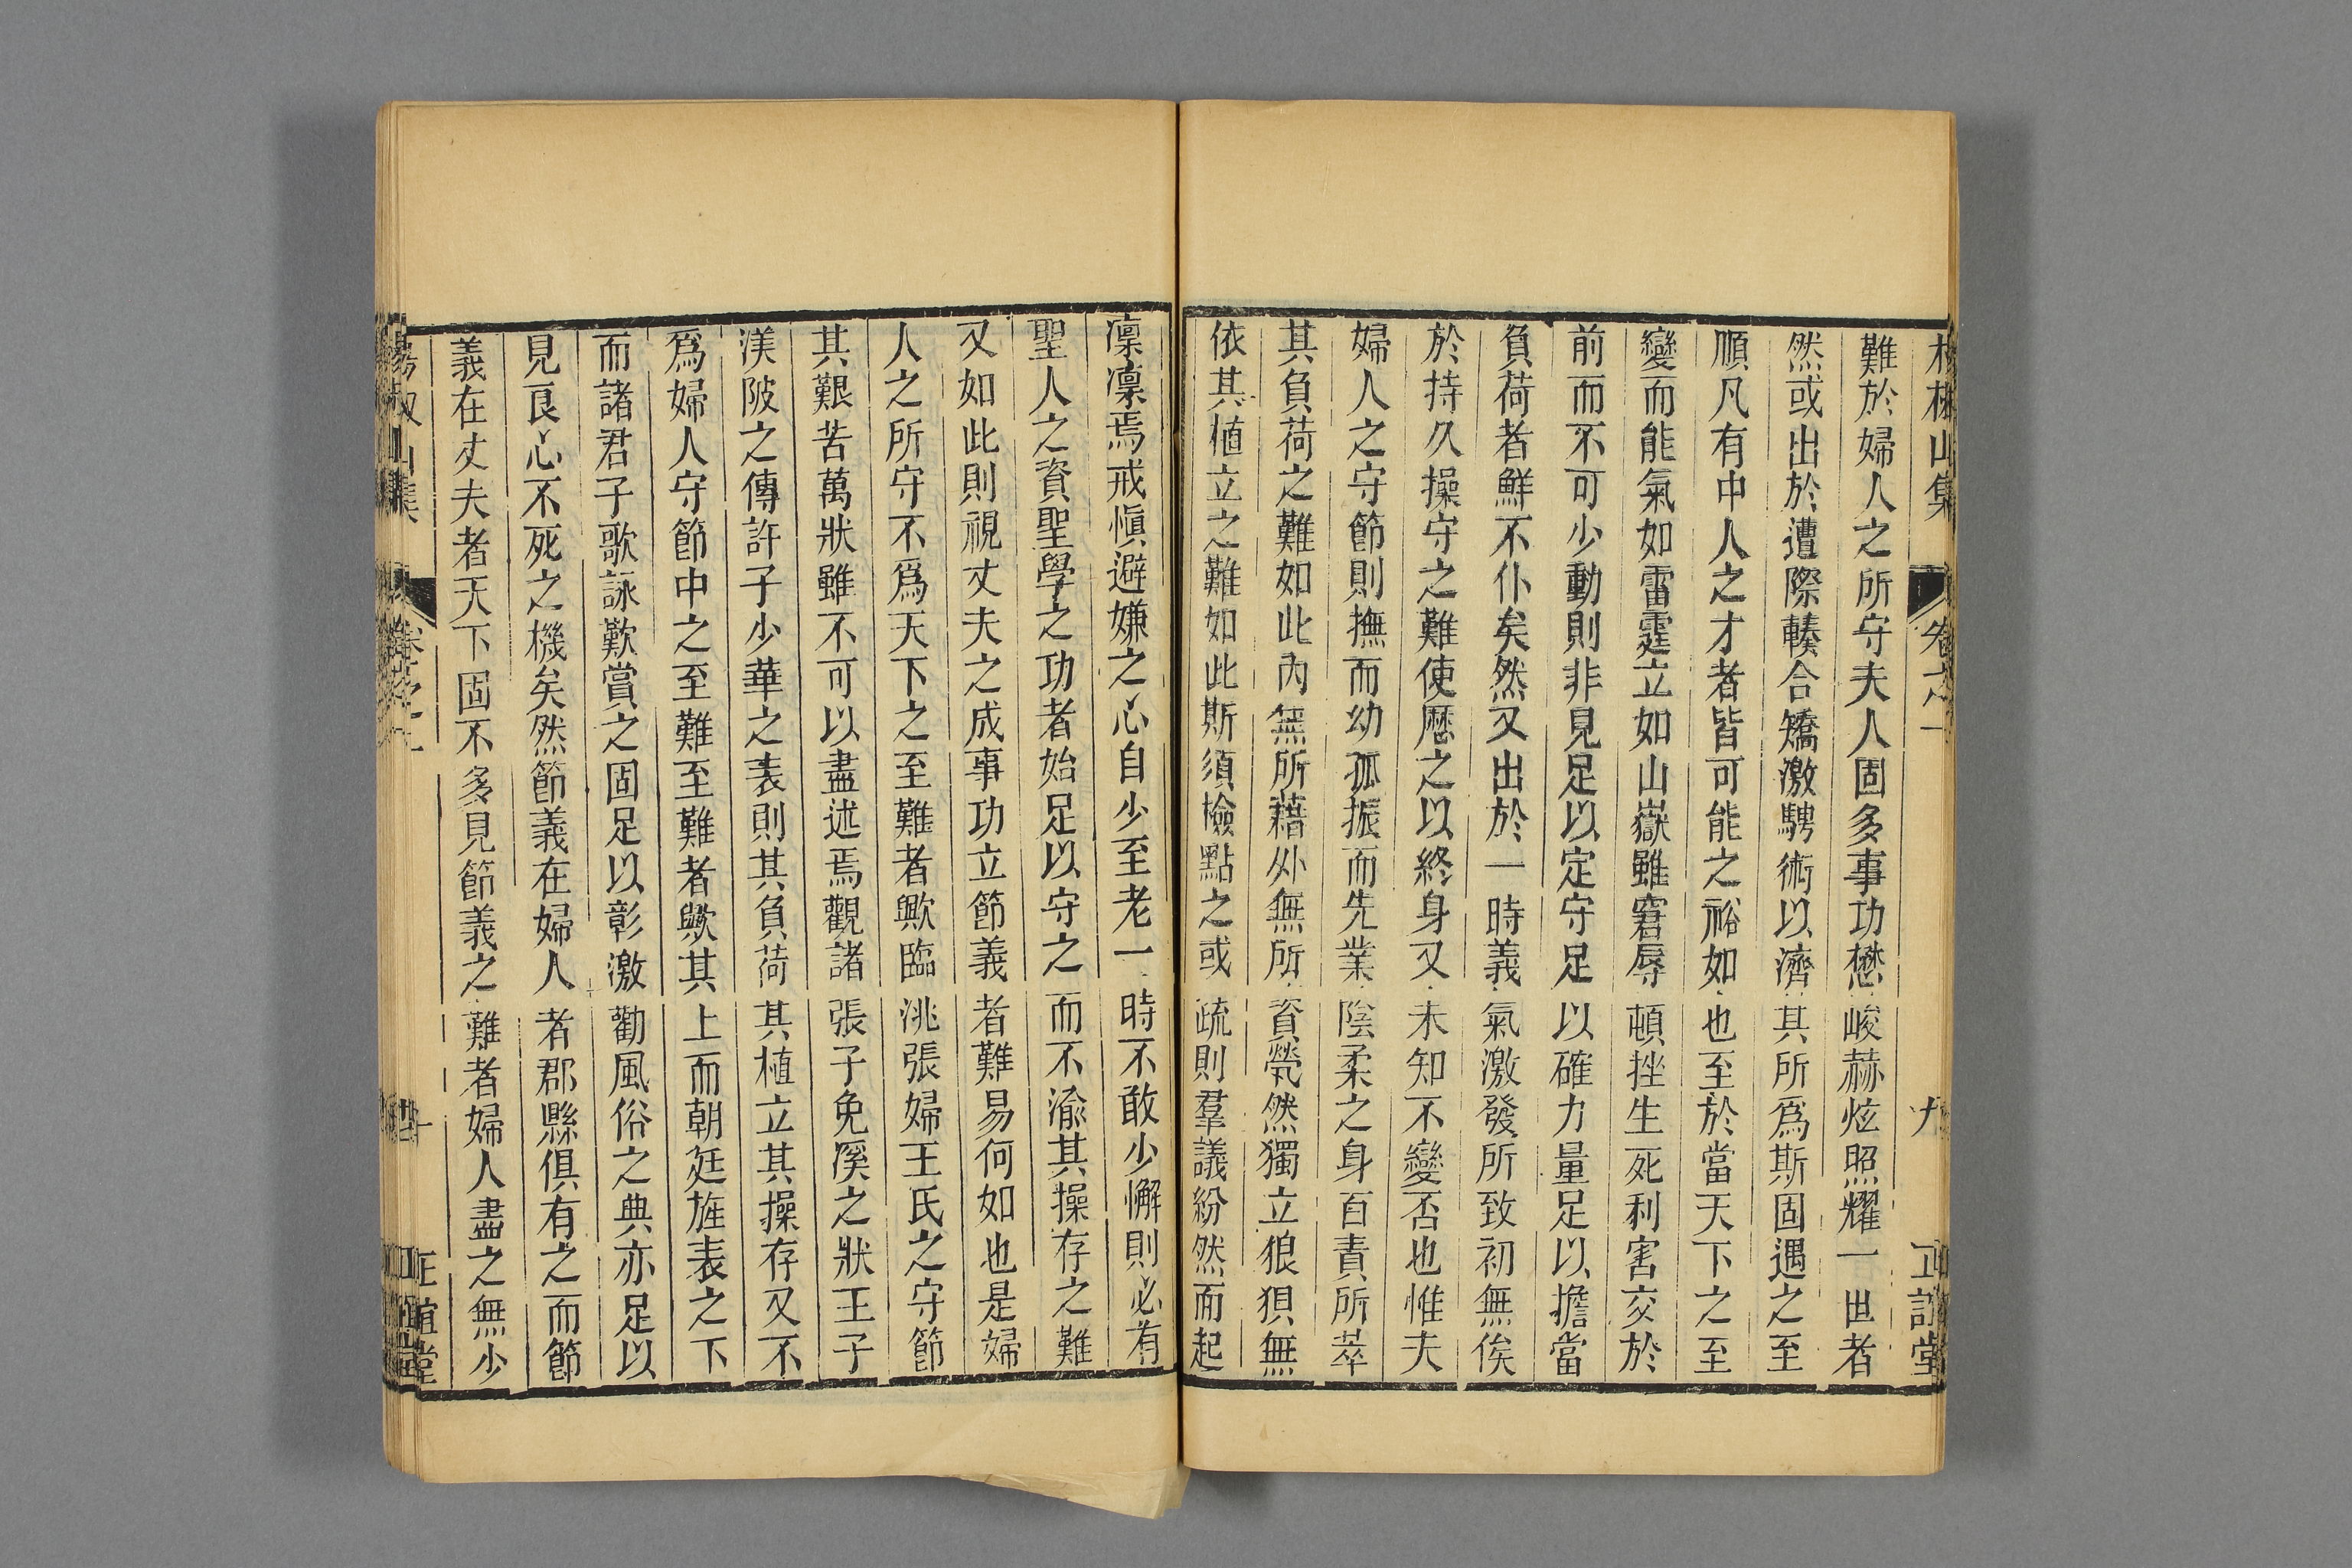 山集 卷之一 九 正誼堂
難於婦人之所守夫人固多事功懋峻赫炫照耀一世者
然或出於遭際輳合矯激騁術以濟其所爲斯固遇之至
順凡有中人之才者皆可能之裕如也至於當天下之至
變而能氣如雷霆立如山嶽雖窘辱頓挫生死利害交於
前而不可少動則非見足以定守足以確力量足以擔當
負荷者鮮不仆矣然又出於一時義氣激發所致初無俟
於持久操守之難使歷之以終身又未知不變否也惟夫
婦人之守節則撫而幼孤振而先業陰柔之身百責所萃
其負荷之難如此內無所藉外無所資煢然獨立狼狽無
依其植立之難如此斯須檢點之或疏則羣議紛然而起
凛凛焉戒愼避嫌之心自少至老一時不敢少懈則必有
聖人之資聖學之功者始足以守之而不渝其操存之難
又如此則視丈夫之成事功立節義者難易何如也是婦
人之所守不爲天下之至難者歟臨洮張婦王氏之守節
其艱苦萬狀雖不可以盡述焉觀諸張子免溪之狀王子
渼陂之傳許子少華之表則其負荷其植立其操存又不
爲婦人守節中之至難至難者歟其上而朝廷旌表之下
而諸君子歌詠歎賞之固足以彰激勸風俗之典亦足以
見良心不死之機矣然節義在婦人者郡縣俱有之而節
義在丈夫者天下固不多見節義之難者婦人盡之無少
山集 正誼堂